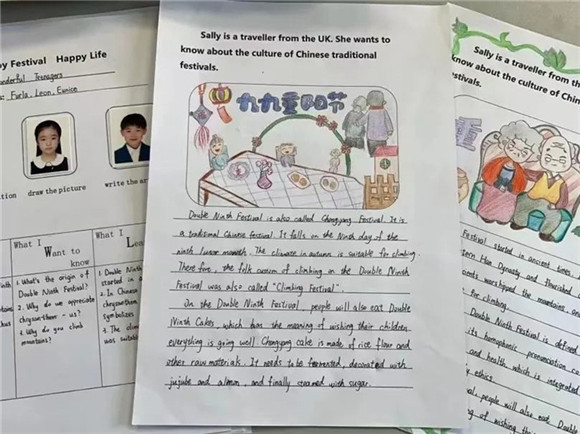 y Festival Happy Life
onderful Teenagers
Furla, Leon, Eunice
draw the picture write the
What I Want to know
What I
1. What's the origin of Double Ninth Festival?
2. Why do we appreciate chrysanthemums?
3. Why do you climb mountains?
1. Double Ninth
started in
2. In Chinese
symbolizes
3. The
was suitable
Sally is a traveller from the UK. She wants to
know about the culture of Chinese traditional
festivals.
九九重阳节
Double Ninth Festival is also called Chongyang Festival. It is
a traditional Chinese festival. It falls on the Ninth day of the
ninth lunar month. The climate in autumn is suitable for climbing.
Therefore, the folk custom of climbing on the Double Ninth
Festival was also called "Climbing Festival".
On the Double Ninth Festival, people will also eat Double
Ninth Cakes, which has the meaning of wishing their children
everything is going well. Chongyang cake is made of rice flour and
other raw materials. It needs to be fermented, decorated with
jujube and almon, and finally steamed with sugar.
Sally is a traveller from
know about the culture of Chinese
stivals.
重
Festival started in ancient times,
Han Dynasty and flourished
worshipped the mountains, and
for climbing.
Double Ninth Festival is defined
its homophonic pronunciation
and health which is integrated
ethics.
people will also eat Double
of wishing the